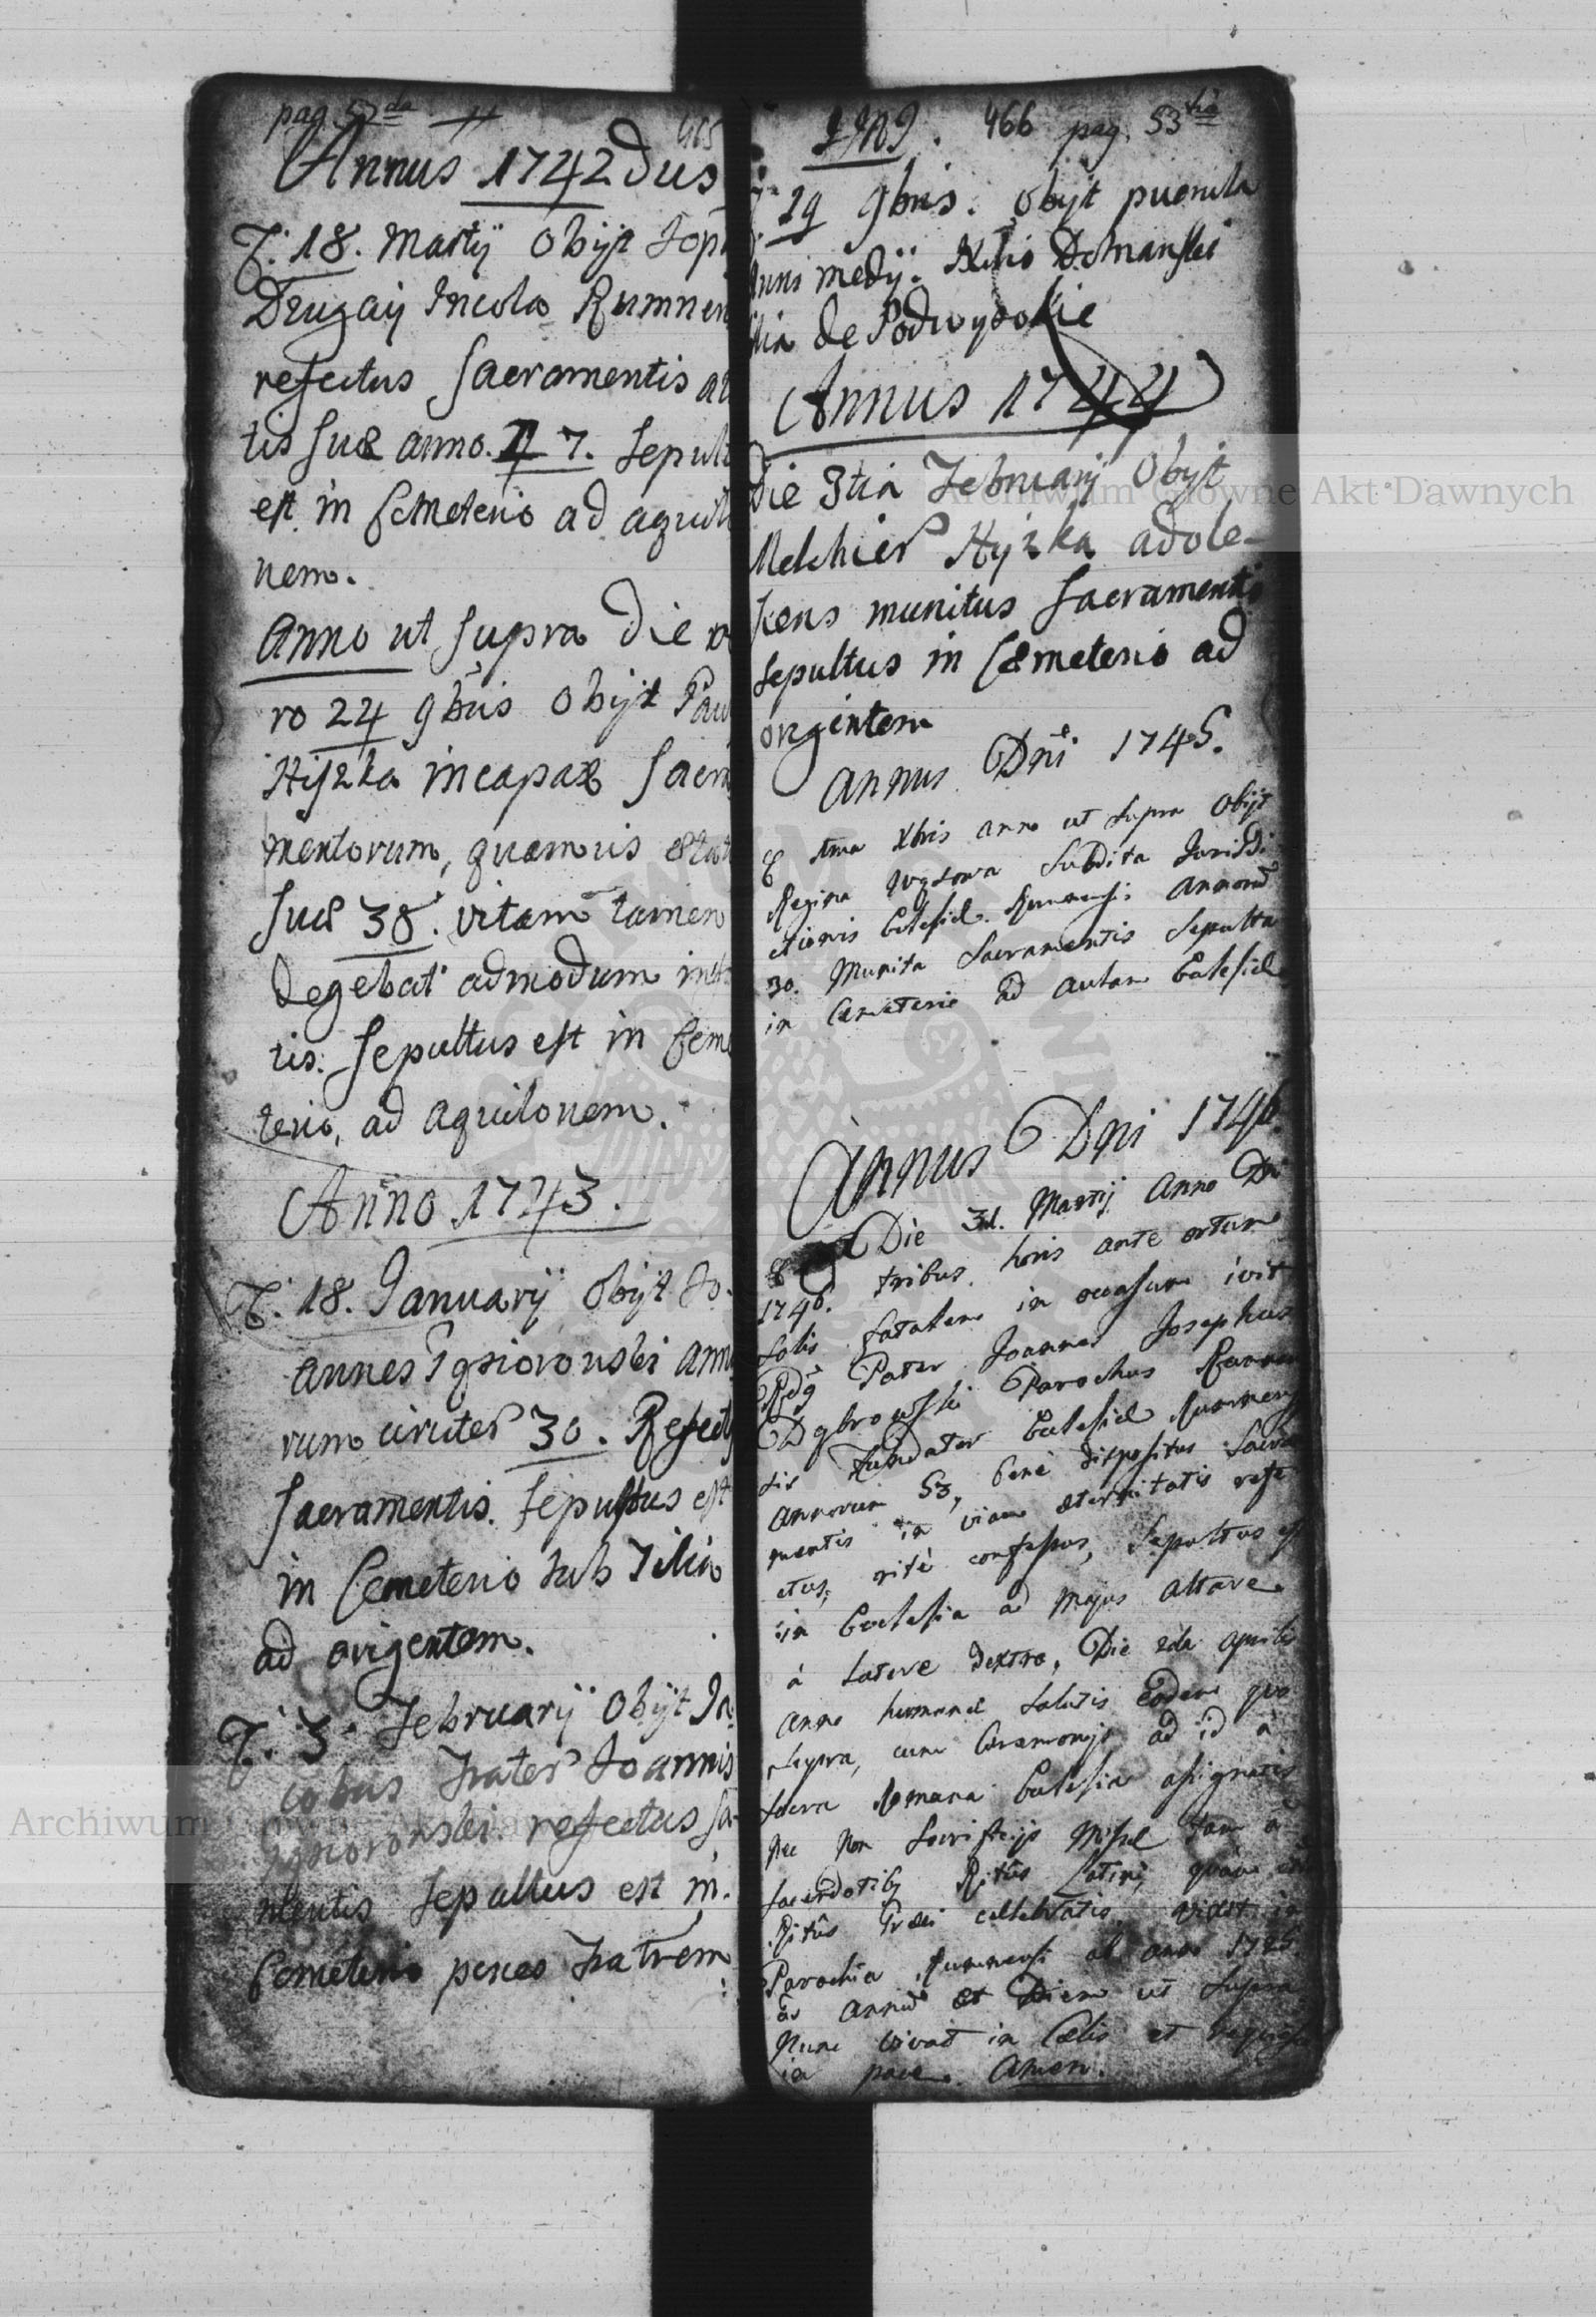 pag. 52da
465
Annus 1742dus
18. Martij Obijt
Drugaij Incola Rumnen
refectus Sacramentis
tis suæ anno. 47. Sepult
est in Cemeterio ad aquilo
nem.
Anno ut supra Die
ro 24 9bris Obijt Paw
Hijzka incapax Sacra
mentorum, quamvis ætat
suæ 38. vitam tamen
degebat admodum
tis. Sepultus est in Ceme
terio, ad aquilonem.
Anno 1743.
18. Januarij Obijt Jo-
annes Gąsiorowski anno
rum circiter 30. Refectus
Sacramentis. Sepultus est
in Cemeterio sub Tilia
ad origentem.
3. Februarij Obijt Ja
cobus Frater Joannis
Gąsiorowski refectus Sa-
mentis Sepultus est in
Cemeterio penes Fratrem
466 pag. 53tia
19 9bris. Obijt puerula
Anni medij. Domanski
filia de Podwysokie
Annus 1744
Die 3tia Februarij Obijt
Melchier Hyzka adole-
scens munitus Sacramentis
Sepultus in Cæmeterio ad
origentem
Annus Dni 1745.
Xbris anno ut supra Obijt
Regina Subdita Jurisdi
ctionis Eclesiæ Rumnensis annorū
30. Munita Sacramentis Sepulta
in Cæmeterio ad Eclesiæ
Annus Dni 1746.
Die 31. Martij Anno Dni
1746. tribus horis ante ortum
Solis fatalem in occasum ivit
Rdę Pater Joannes Josephus
Dąbrowski Parochus Rumnen
sis fundator Eclesiæ Rumnens
annorum 53, benè dispositus Sacra
mentis in viam æternitatis refe
ctus, ritè confessus, Sepultus est
in Ecclesia ad majus altare
à latere dextro, Die 2da aprilis
anno humanæ salutis Eodem quo
supra, cum Ceremonijs ad id à
Sacra Romana Eclesia assignatis
nec non Sacrificijs Missæ tam à
Sacerdotibq Ritûs Latini, quam
Ritûs Græci cellebratis, vixit in
Parochia Rumnensi ab anno
ad annū et Diem ut Supra
Nunc vivat in Cælis et requiescat
in pace. Amen.
Archiwum Główne Akt Dawnych
Archiwum Główne Akt Dawnych